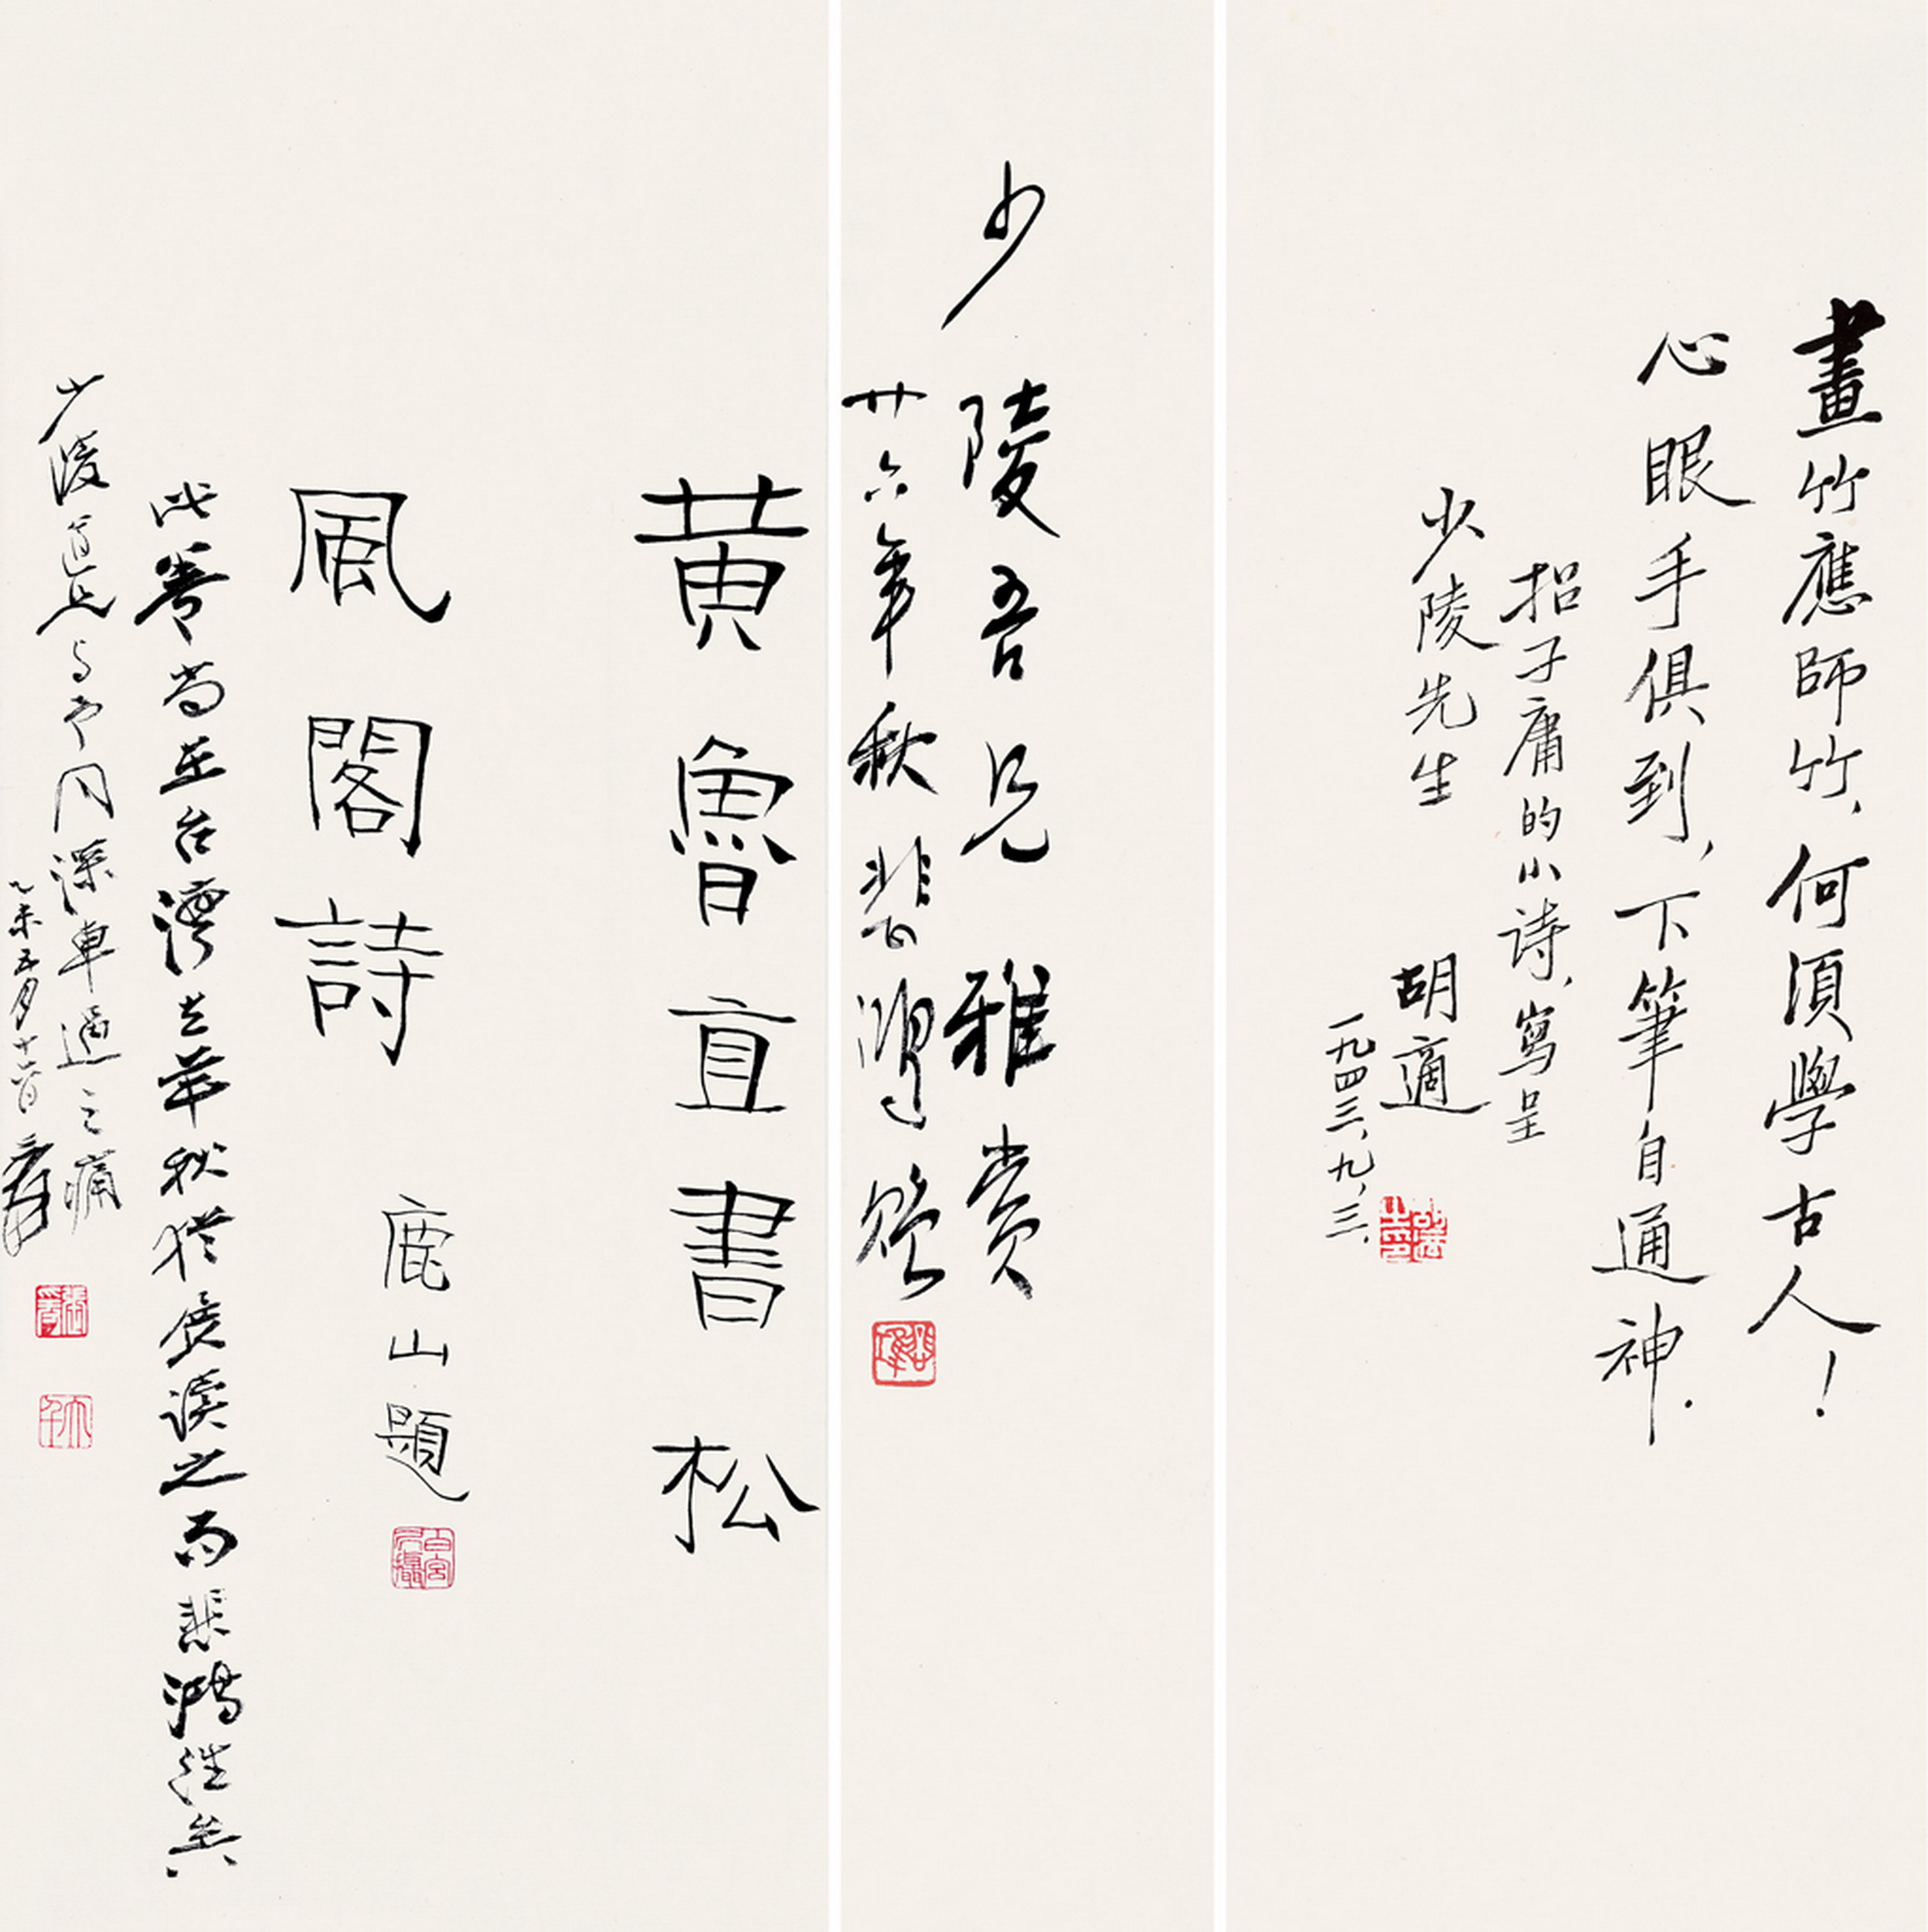 畫竹應師竹，何須學古人！
心眼手俱到，下筆自通神．
招子庸的小詩，寫呈
少陵先生
胡適
一九四三，九，三．
少陵吾兄雅賞
廿六年秋悲鴻發
黃魯直書松
風閣詩
鹿山題
此卷尚在台灣去年秋猶展讀之而悲鴻往矣
少陵道兄與予同深車過之痛
乙未五月十一日爰